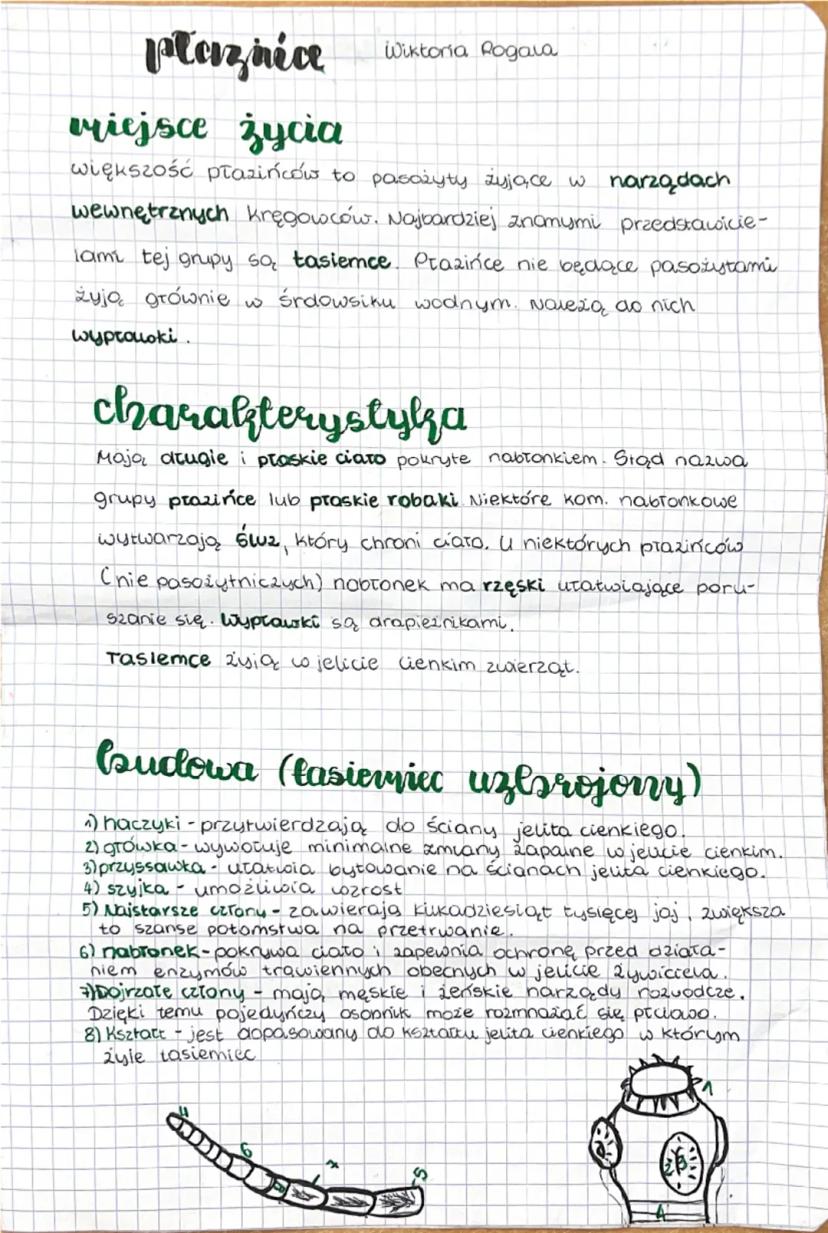 płaźnice Wiktoria Rogala
miejsce życia
większość płazińców to pasożyty żyjące w narządach
wewnętrznych kręgowców. Najbardziej znanymi przedstawicie-
lami tej grupy są tasiemce. Płazińce nie będące pasożytami
żyją głównie w środowsiku wodnym. Należą do nich
wypławki.
charakterystyka
Mają długie i płaskie ciało pokryte nabłonkiem. Stąd nazwa
grupy płazińce lub płaskie robaki. Niektóre kom. nabłonkowe
wytwarzają śluz, który chroni ciało. U niektórych płazińców
(nie pasożytniczych) nabłonek ma rzęski ułatwiające poru-
szanie się. Wypławki są drapieżnikami.
Tasiemce żyją w jelicie cienkim zwierząt.
budowa (tasiemiec uzbrojony)
1) haczyki - przytwierdzają do ściany jelita cienkiego.
2) główka - wywołuje minimalne zmiany zapalne w jelicie cienkim.
3) przyssawka - ułatwia bytowanie na ścianach jelita cienkiego.
4) szyjka - umożliwia wzrost
5) Najstarsze człony - zawierają kilkadziesiąt tysięcy jaj, zwiększa
to szanse potomstwa na przetrwanie.
6) nabłonek - pokrywa ciało i zapewnia ochronę przed działa-
niem enzymów trawiennych obecnych w jelicie żywiciela.
7) Dojrzałe człony - mają męskie i żeńskie narządy rozwodcze.
Dzięki temu pojedyńczy osobnik może rozmnażać się płciowo.
8) Kształt - jest dopasowany do kształtu jelita cienkiego w którym
żyje tasiemiec
6
7
5
1
2
3
4